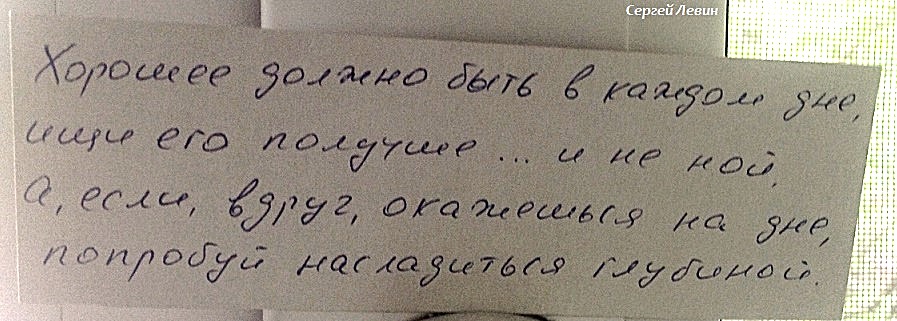 Сергей Левин
Хорошее должно быть в каждом дне,
ищи его получше... и не ной.
А, если, вдруг, окажешься на дне,
попробуй насладиться глубиной.